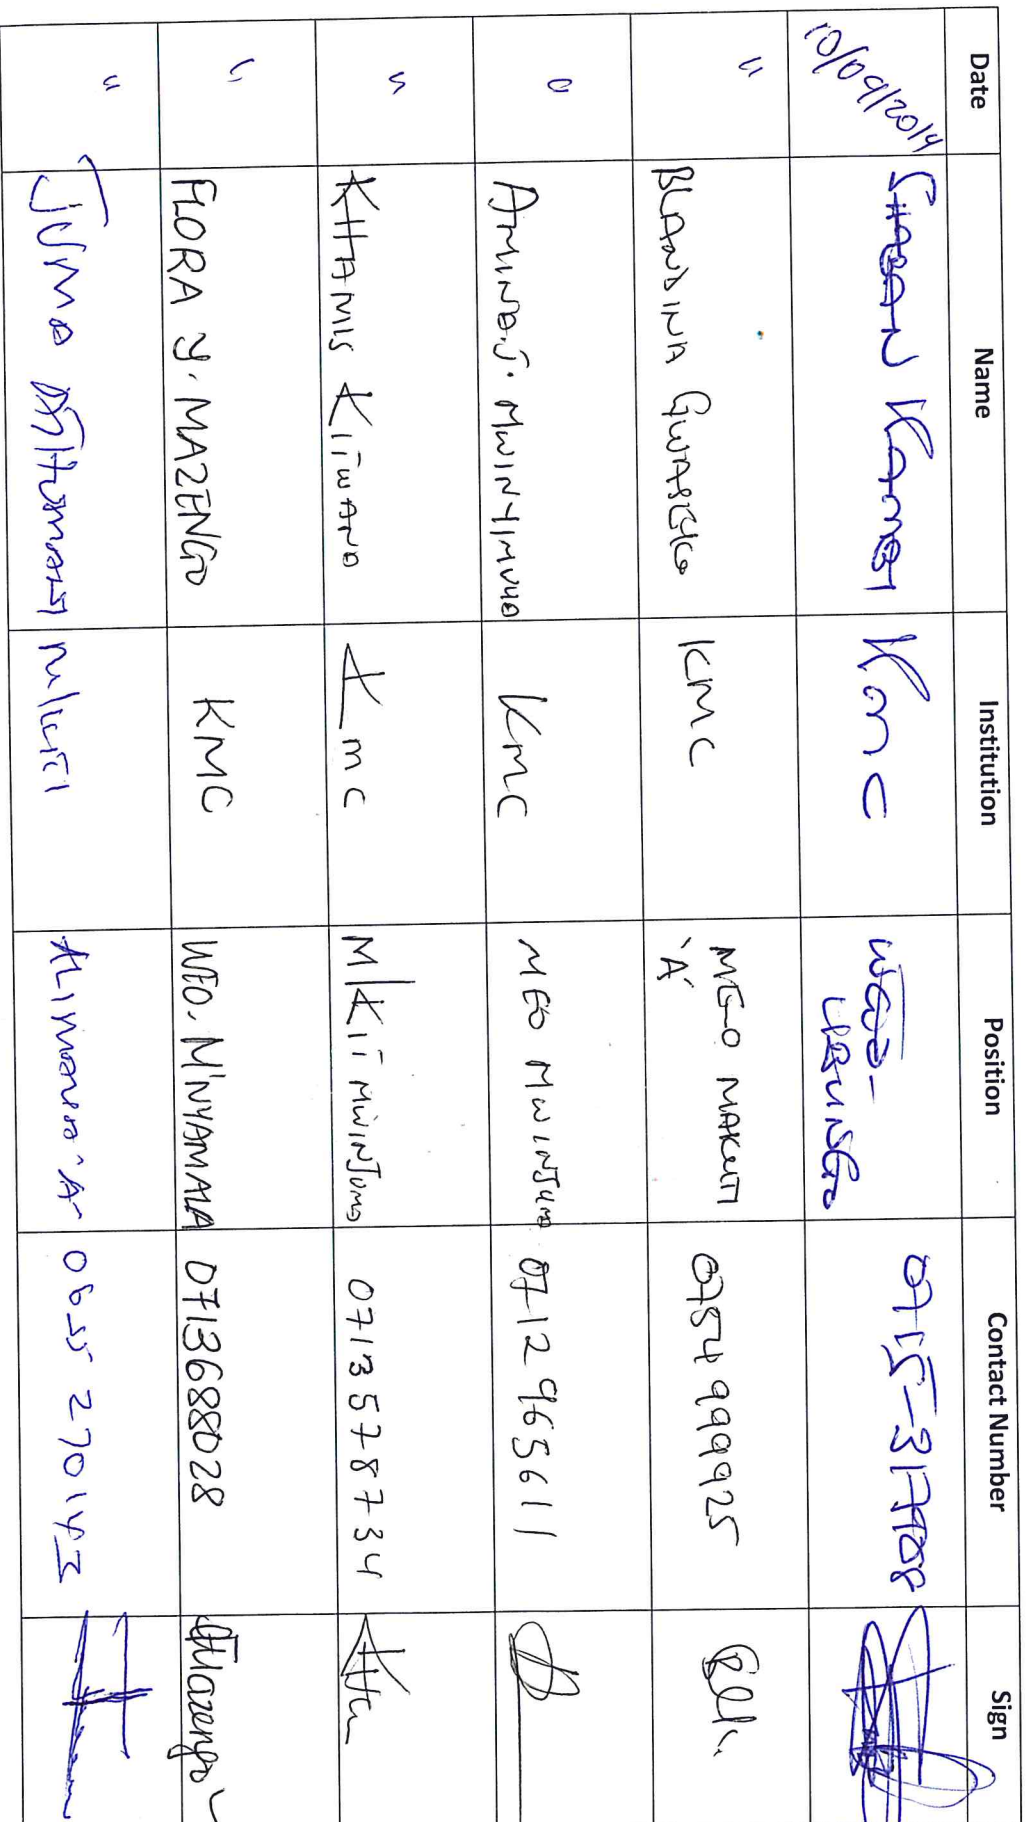 Date Name Institution Position Contact Number Sign
10/09/2014 SHABAN KAMBI KMC WEO- UBUNGO 0715-317908
" BLANDINA GWASEKO KMC MEO MAKUTI 'A' 0754 999925
" AMINA.S. MWINYIMVUO KMC MEO MWINJUMA 0712 965611
" KHAMIS KITWANA KMC M/KITI MWINJUMA 0713578734
" FLORA Y. MAZENGO KMC WEO. M'NYAMALA 0713688028 Mazengo
" JUMA M/KITI 'A' 0655 270142